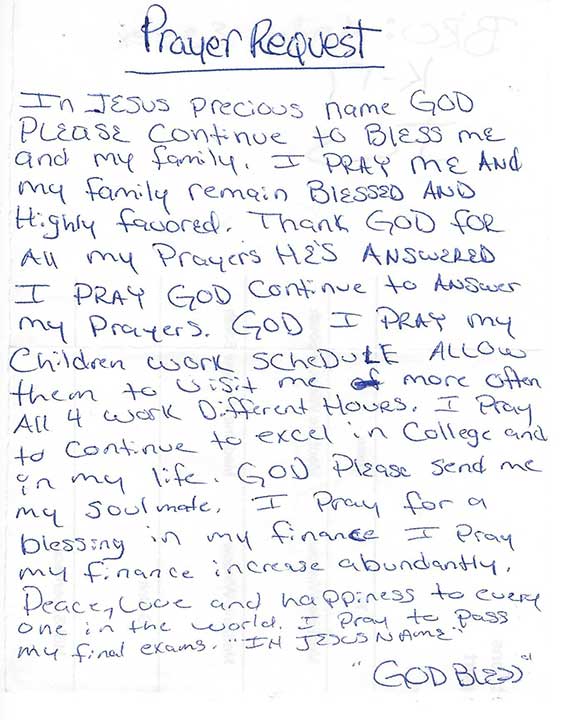 Prayer Request
In JESUS precious name GOD
PLEASE continue to BLESS me
and my family. I PRAY ME AND
my family remain BLESSED AND
Highly favored. Thank GOD FOR
All my Prayers HE'S ANSWERED
I PRAY GOD continue to ANSWER
my Prayers. GOD I PRAY my
Children work SCHEDULE ALLOW
them to visit me more often
All 4 work Different Hours. I Pray
to continue to excel in College and
in my life. GOD Please send me
my soulmate. I Pray for a
blessing in my finance I Pray
my finance increase abundantly.
Peace, Love and happiness to every
one in the world. I Pray to pass
my final exams. "IN JESUS NAME"
"GOD BLESS"